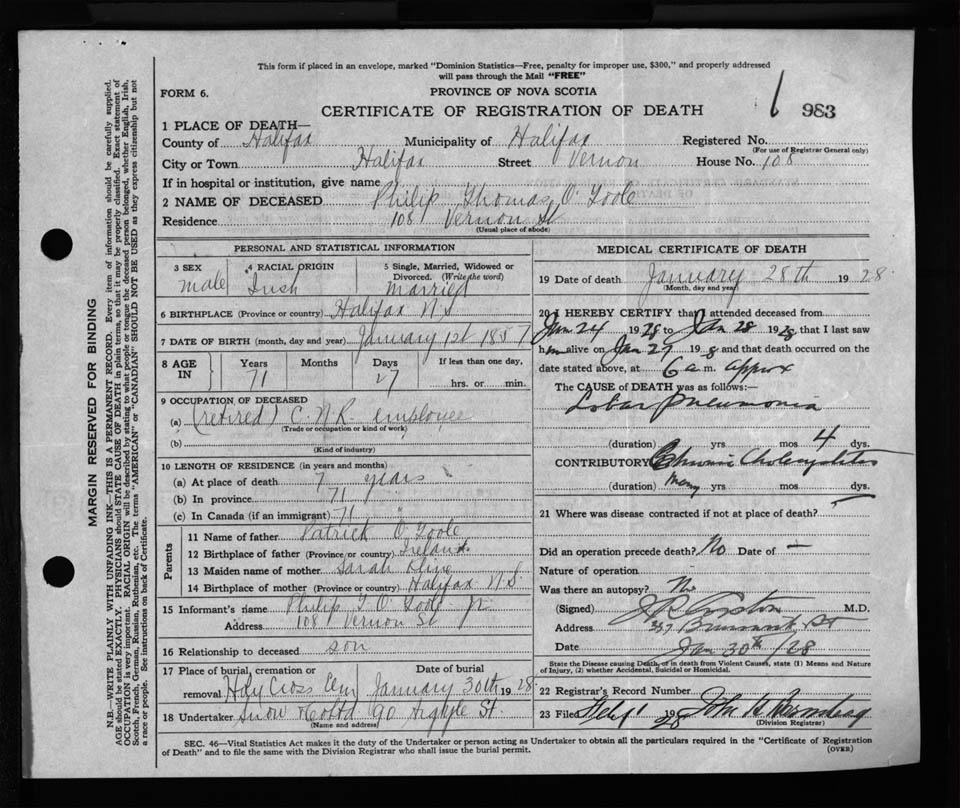 This form if placed in an envelope, marked "Dominion Statistics—Free, penalty for improper use, $300," and properly addressed
will pass through the Mail "FREE"
FORM 6.
PROVINCE OF NOVA SCOTIA
CERTIFICATE OF REGISTRATION OF DEATH
6 983
1 PLACE OF DEATH—
County of Halifax Municipality of Halifax Registered No.
(For use of Registrar General only)
City or Town Halifax Street Vernon House No. 108
If in hospital or institution, give name
2 NAME OF DECEASED Philip Thomas O'Toole
Residence 108 Vernon St
(Usual place of abode)
PERSONAL AND STATISTICAL INFORMATION
3 SEX 4 RACIAL ORIGIN 5 Single, Married, Widowed or Divorced. (Write the word)
male Irish Married
6 BIRTHPLACE (Province or country) Halifax N.S
7 DATE OF BIRTH (month, day and year) January 1st 1857
8 AGE IN Years Months Days If less than one day,
71 27 hrs. or min.
9 OCCUPATION OF DECEASED
(a) (retired) C.N.R. employee
(Trade or occupation or kind of work)
(b)
(Kind of industry)
10 LENGTH OF RESIDENCE (in years and months)
(a) At place of death 7 years
(b) In province 71 "
(c) In Canada (if an immigrant) 71 "
Parents
11 Name of father Patrick O'Toole
12 Birthplace of father (Province or country) Ireland
13 Maiden name of mother Sarah Kline
14 Birthplace of mother (Province or country) Halifax N.S.
15 Informant's name Philip T. O'Toole Jr.
Address 108 Vernon St
16 Relationship to deceased son
17 Place of burial, cremation or removal Date of burial
Holy Cross Cem January 30th 1928
18 Undertaker Snow & Co Ltd 90 Argyle St
(Name and address)
MEDICAL CERTIFICATE OF DEATH
19 Date of death January 28th 1928
(Month, day and year)
20 I HEREBY CERTIFY that I attended deceased from
Jan 24 1928 to Jan 28 1928, that I last saw
him alive on Jan 27 1928 and that death occurred on the
date stated above, at 6 a.m. approx
The CAUSE of DEATH was as follows:—
Lobar Pneumonia
(duration) yrs mos 4 dys.
CONTRIBUTORY Chronic Cholecystitis
(duration) Many yrs mos dys.
21 Where was disease contracted if not at place of death?
Did an operation precede death? No Date of —
Nature of operation
Was there an autopsy? No
(Signed) M.D.
Address Brunswick St
Date Jan 30th /28
State the Disease causing Death, or in death from Violent Causes, state (1) Means and Nature
of Injury, (2) whether Accidental, Suicidal or Homicidal.
22 Registrar's Record Number
23 Filed Feby 1 1928 John
(Division Registrar)
SEC. 46—Vital Statistics Act makes it the duty of the Undertaker or person acting as Undertaker to obtain all the particulars required in the "Certificate of Registration
of Death" and to file the same with the Division Registrar who shall issue the burial permit.
(OVER)
MARGIN RESERVED FOR BINDING
N.B.—WRITE PLAINLY WITH UNFADING INK—THIS IS A PERMANENT RECORD. Every item of information should be carefully supplied.
AGE should be stated EXACTLY. PHYSICIANS should STATE CAUSE OF DEATH in plain terms, so that it may be properly classified. Exact statement of
OCCUPATION is very important. RACIAL ORIGIN will be described by stating to what people or tongue the deceased person belonged, whether English, Irish,
Scotch, French, German, Russian, Ruthenian, etc. The terms "AMERICAN" or "CANADIAN" SHOULD NOT BE USED as they express citizenship but not
a race or people. See instructions on back of Certificate.